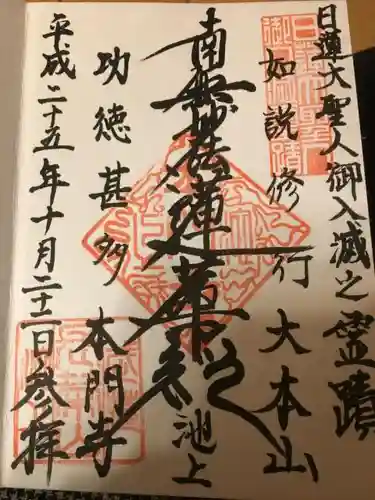 日蓮大聖人御入滅之霊蹟
如説修行 大本山
南無妙法蓮華経 池上
功徳甚多 本門寺
平成二十五年十月二十二日参拝